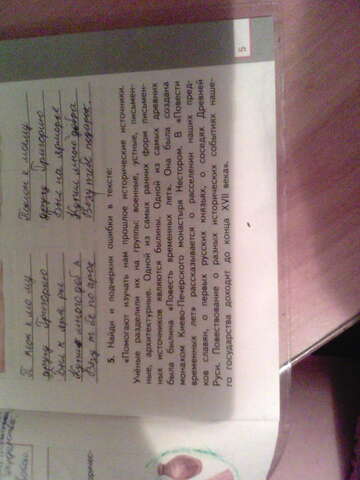 другу Григорию
Был на ярмарке
другу Григорию
5. Найди и подчеркни ошибки в тексте:
«Помогают изучать нам прошлое исторические источники.
Учёные разделили их на группы: военные, устные, письмен-
ные, архитектурные. Одной из самых ранних форм письмен-
ных источников являются былины. Одной из самых древних
была былина «Повесть временных лет». Она была создана
монахом Киево-Печерского монастыря Нестором. В «Повести
временных лет» рассказывается о расселении наших пред-
ков славян, о первых русских князьях, о соседях Древней
Руси. Повествование о разных исторических событиях наше-
го государства доходит до конца XVII века».
5